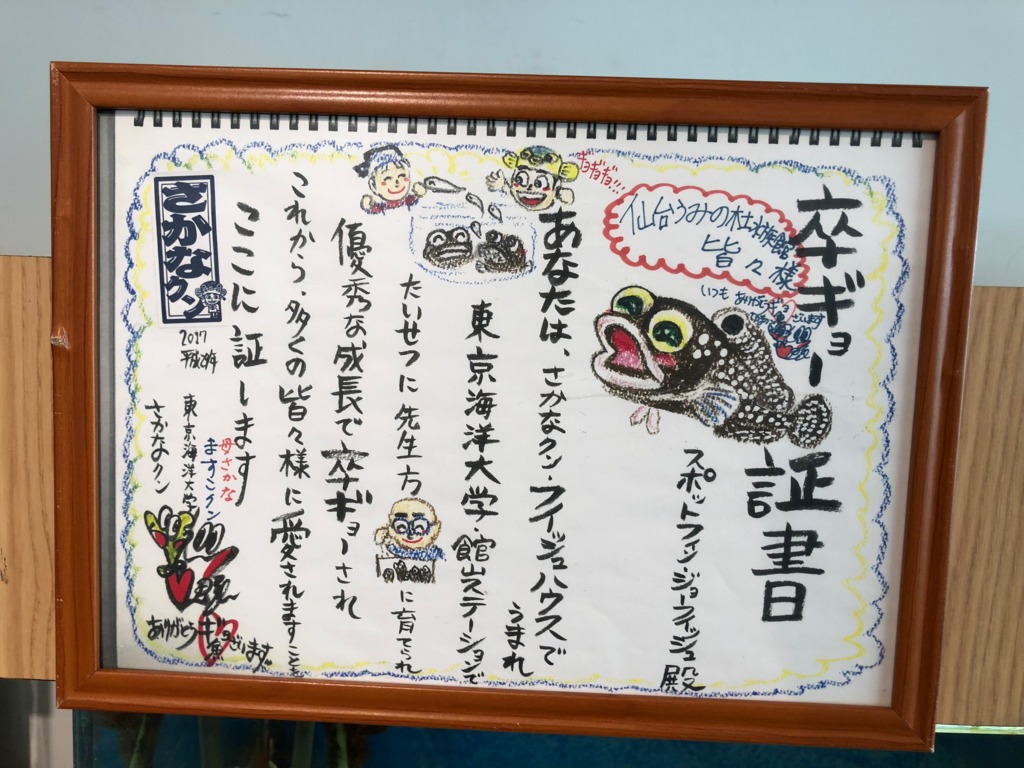 卒ギョー証書
仙台うみの杜水族館
皆々様
いつもありがとうギョざいます
ギョギョギョ!!!
スポットフィンジョーフィッシュ殿
あなたは、さかなクン・フィッシュハウスで
うまれ
東京海洋大学・館山ステーションで
たいせつに先生方
に育てられ
優秀な成長で卒ギョーされ
これから・多くの皆々様に愛されますことを
ここに証します
さかなクン
2017
平成29年
東京海洋大学
さかなクン
ありがとうギョざいます